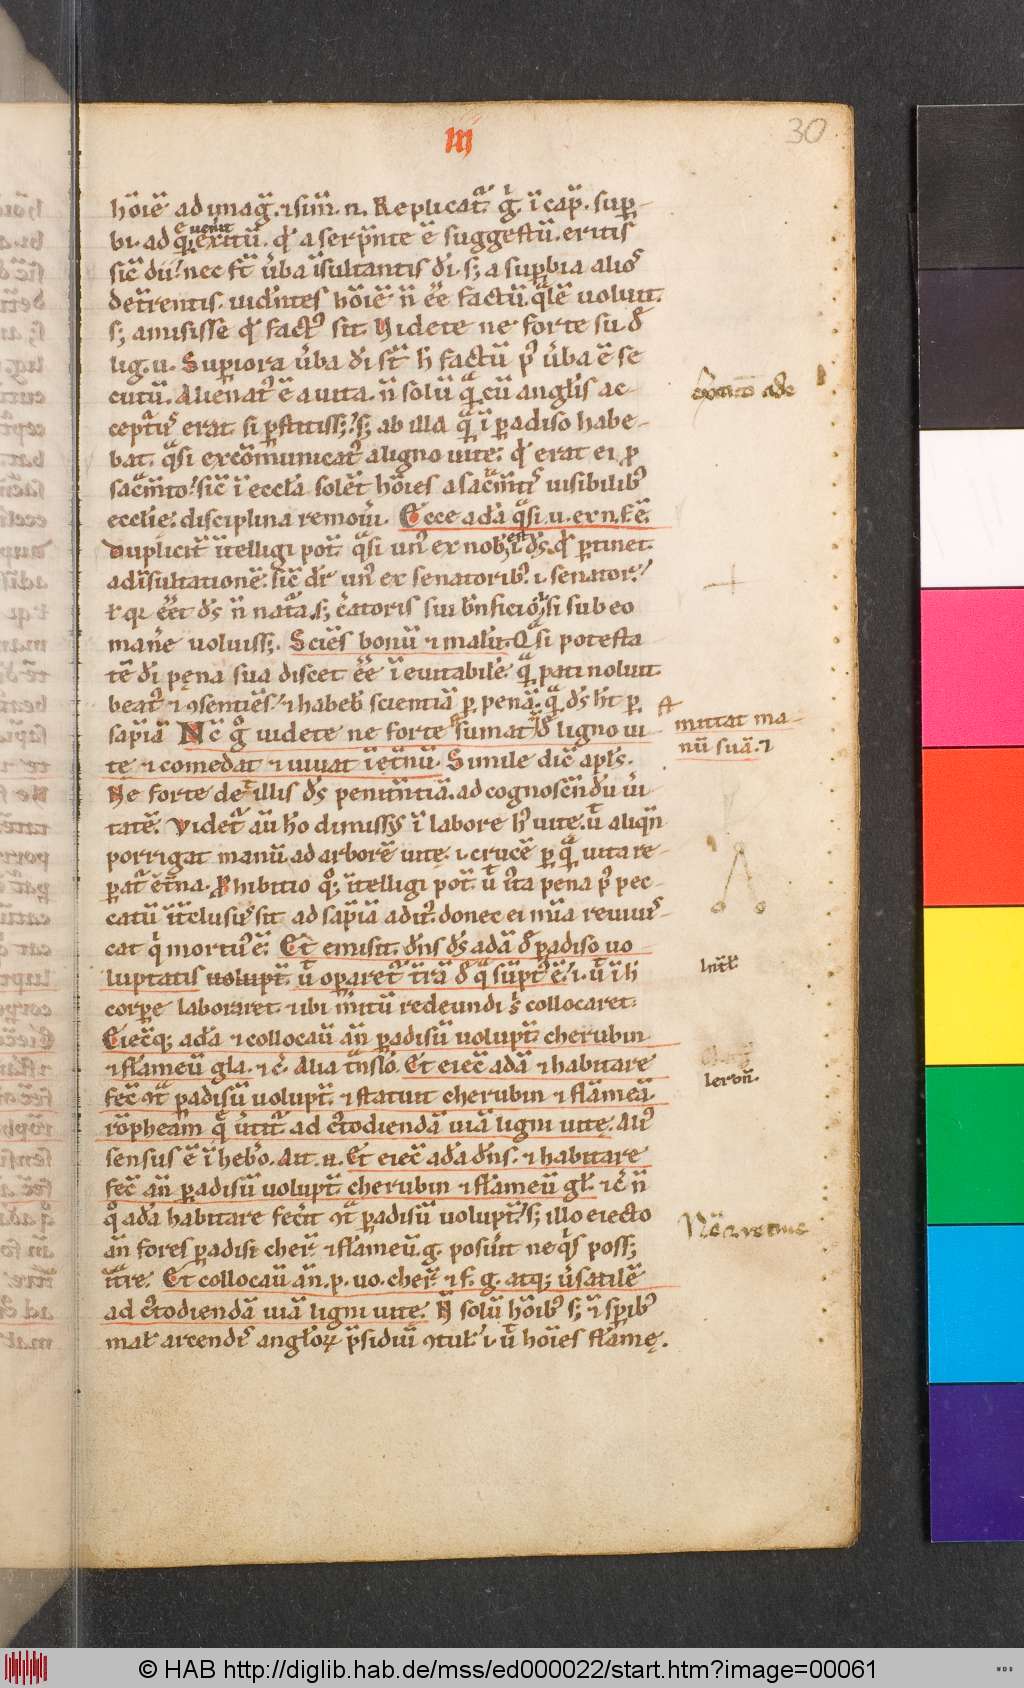 III
30
hōīē ad imag̅. ⁊ sim̅. n. Replicat᷑. g̊. ī cap̅. sup̱-
bi. ad q̇.
euenit
exitū. qd̓ a serp̅nte ē suggestū. eritis
sic̅ dii. nec st̄ ūba īsultantis dī. s; a sup̱bia alios
det̅rentis. uid̅ntes hōīē n̄ ēē factū. q̄lē uoluit.
s; amisisse qd̓ fact᷒ sit. Videte ne forte su. d̓
lig. u. Sup̱iora ūba dī st̄ h̄ factū p᷒ ūba ē se
cutū. Alienat᷒ ē a uita. n̄ solū q̄ cū angl̄is ac-
cept᷒us erat si p̱stitiss;. s; ab illa q̄ ī p̱adiso habe-
bat. q̄si excōmunicat᷒ a ligno uite. qd̓ erat ei p̱
sac̄m̄to. sic̅ ī eccl̄a solēt hōīes a sac̄m̄tis uisibilib᷒
eccl̄ie. disciplina remoū̄i. Ecce adā q̄si u. ex n. f. ē.
Duplicit̄ ītelligi pot̄. q̄si un᷒ ex nob̄. ī
est
ds̄. qd̓ p̱tinet
ad īsultationē. sic̅ dr̄ un᷒ ex senatorib᷒. i. senator.
ł qi eēt ds̄ n̄ nat̄a. s; c̄atoris sui b̄nficio. si sub eo
man̄e uoluiss;. Sciēs bonū ⁊ malū. Q̄si potesta-
tē dī pęna sua discet ēē ī euitabilē. q̄ pati noluit
beat᷒ ⁊ ꝯsentiēs. ⁊ habeb̄ scientiā p̱ penā. q̄ ds̄ h̄t p̱
sap̄iā Nc̄ g̊ uidete ne forte sumat d̓ ligno ui
mittat ma-
nū suā. ⁊
te ⁊ comedat ⁊ uiuat ī et̄nū. Simile dic̄ apl̄s.
Ne forte det illis ds̄ penit̄ntiā. ad cognoscēdū ūi
tatē. Videt᷑ aū h̄o dimiss᷒ ī labore h᷒ uite. ū aliqn̄
porrigat manū ad arborē uitę. i. crucē p̱ q̄ uita re-
p̱at᷑ et̄na. Ꝓhibitio q̊; ītelligi pot̄. ū i̅ta pena p᷒ pec-
catū ī̄telusi᷒ sit ad sap̄iā adit᷒. donec ei mīa reuiuis-
cat q̇ mortu᷒ ē. Et emisit. dn̄s ds̄ adā d̓ p̱adiso uo
luptatis uolupt̄. ū op̱aret᷑ t̄rā d̓ q̄ sūpt᷒ ē. i. ū ī h̄
corp̱e laboraret ⁊ ibi m̄itū redeundi s̄ collocaret.
Eiec̄q; adā ⁊ collocauī an̄ p̱adisū uolupt̄. cherubin
⁊ flāmeū gla. ⁊ c̄. Alia t̄nslō. Et eiec̄ adā ⁊ habitare
lerbn̄.
fec̄ ꝯt̄ p̱adisū uolupt̄. ⁊ statuit cherubin ⁊ flāmeā
rōpheam q̄ ū̄tit᷑ ad c᷒todiendā uiā ligni uite. Ali᷒
sensus ē ī heb̄o. Ait. n. Et eiec̄ adā dn̄s. ⁊ habitare
fec̄ an̄ p̱adisū uolupt̄. cherubin ⁊ flāmeū gł. ⁊ c̄ n̄
q̊ adā habitare fec̄it ꝯt̄ p̱adisū uolupt̄. s; illo eiecto
an̄ fores p̱adisi cher̄. ⁊ flāmeū. g. posūit ne q̇s poss;
īt̄re. Et collocauī an̄. p. uo. cher̄ ⁊ f. g. atq; ūsatilē
ad c᷒todiendā uiā ligni uitę. N̄ solū hōīb᷒ s; ⁊ sp̄ib᷒
mał arcendis angl̄oꝝ p̄sidiū ꝯtuł. i. ū hōīes flāmę.
© HAB http://diglib.hab.de/mss/ed000022/start.htm?image=00061